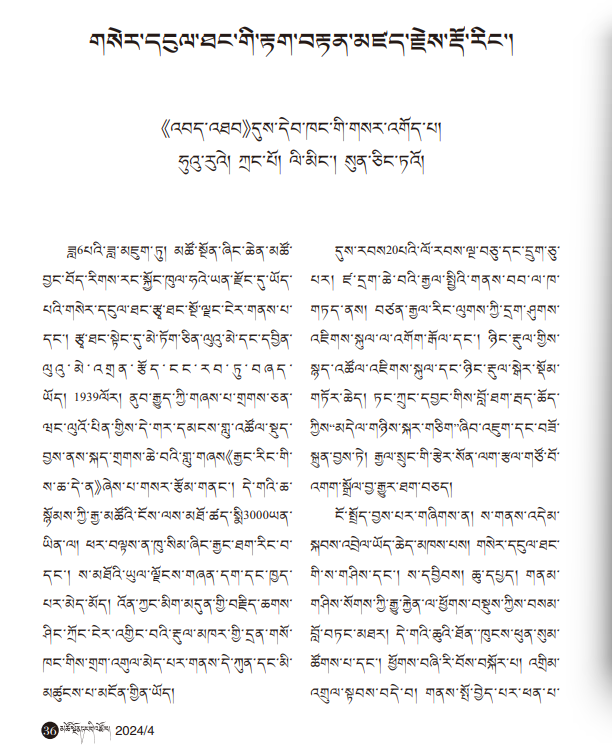 གསེར་དངུལ་ཐང་གི་རྟག་བརྟན་མཛད་རྗེས་རྡོ་རིང་།
《འབད་འཐབ》དུས་དེབ་ཁང་གི་གསར་འགོད་པ།
ཧུའུ་རུའེ། ཀྲང་པོ། ལི་མིང་། སུན་ཅིང་ཏའོ།
ཟླ6པའི་ཟླ་མཇུག་ཏུ། མཚོ་སྔོན་ཞིང་ཆེན་མཚོ་
བྱང་བོད་རིགས་རང་སྐྱོང་ཁུལ་ཧའེ་ཡན་རྫོང་དུ་ཡོད་
པའི་གསེར་དངུལ་ཐང་རྩྭ་ཐང་སྔོ་ལྗང་ངེར་གནས་པ་
དང་། རྩྭ་ཐང་སྟེང་དུ་མེ་ཏོག་ཅིན་ལུའུ་མེ་དང་དབྱིན་
ལུའུ་མེ་འགྲན་རྩོད་ངང་རབ་ཏུ་བཞད་
ཡོད། 1939ལོར། ནུབ་རྒྱུད་ཀྱི་གཞས་པ་གྲགས་ཅན་
ཝང་ལུའོ་པིན་གྱིས་དེ་གར་དམངས་གླུ་འཚོལ་སྡུད་
བྱས་ནས་སྐད་གྲགས་ཆེ་བའི་གླུ་གཞས《རྒྱང་རིང་གི་
ས་ཆ་དེ་ན》ཞེས་པ་གསར་རྩོམ་གནང་། དེ་གའི་ཆ་
སྙོམས་ཀྱི་རྒྱ་མཚོའི་ངོས་ལས་མཐོ་ཚད་སྨི3000ཡན་
ཡིན་ལ། ཕར་བལྟས་ན་ཁུ་སིམ་ཞིང་རྒྱང་ཐག་རིང་བ་
དང་། ས་མཐོའི་ཡུལ་ལྗོངས་གཞན་དག་དང་ཁྱད་
པར་མེད་མོད། འོན་ཀྱང་མིག་མདུན་གྱི་བརྗིད་ཆགས་
ཤིང་ཀྲོང་ངེར་འགྱིང་བའི་རྡུལ་མཁར་གྱི་དྲན་གསོ་
ཁང་གིས་གྲག་འགུལ་མེད་པར་གནས་དེ་ཀུན་དང་མི་
མཚུངས་པ་མངོན་གྱིན་ཡོད།
དུས་རབས20པའི་ལོ་རབས་ལྔ་བཅུ་དང་དྲུག་ཅུ་
པར། ཛ་དྲག་ཆེ་བའི་རྒྱལ་སྤྱིའི་གནས་བབ་ལ་ཁ་
གཏད་ནས། བཙན་རྒྱལ་རིང་ལུགས་ཀྱི་དྲག་ཤུགས་
འཇིགས་སྐུལ་ལ་འགོག་རྒོལ་དང་། ཉིང་རྡུལ་གྱིས་
སྙད་འཚོལ་འཇིགས་སྐུལ་དང་ཉིང་རྡུལ་སྒེར་སྡོམ་
གཏོར་ཆེད། ཏང་ཀྲུང་དབྱང་གིས་བློ་ཐག་རྦད་ཆོད་
ཀྱིས“མདེལ་གཉིས་སྐར་གཅིག”ཞིབ་འཇུག་དང་བཟོ་
སྐྲུན་བྱས་ཏེ། རྒྱལ་སྲུང་གི་རྩེར་སོན་ལག་རྩལ་གཙོ་བོ་
འགག་སྒྲོལ་བྱ་རྒྱུར་ཐག་བཅད།
ངོ་སྤྲོད་བྱས་པར་གཞིགས་ན། ས་གནས་འདེམ་
སྐབས་འབྲེལ་ཡོད་ཆེད་མཁས་པས། གསེར་དངུལ་ཐང་
གི་ས་གཤིས་དང་། ས་དབྱིབས། ཆུ་དཔྱད། གནམ་
གཤིས་སོགས་ཀྱི་རྒྱུ་རྐྱེན་ལ་ཕྱོགས་བསྡུས་ཀྱིས་བསམ་
བློ་བཏང་མཐར། དེ་གའི་ཆུའི་ཐོན་ཁུངས་ཕུན་སུམ་
ཚོགས་པ་དང་། ཕྱོགས་བཞི་རི་བོས་བསྐོར་པ། འགྲིམ་
འགྲུལ་སྟབས་བདེ་བ། གནས་སྤོ་བྱེད་པར་ཕན་པ་
36 མཚོ་སྔོན་དར་གཞི་རྩོམ། 2024/4